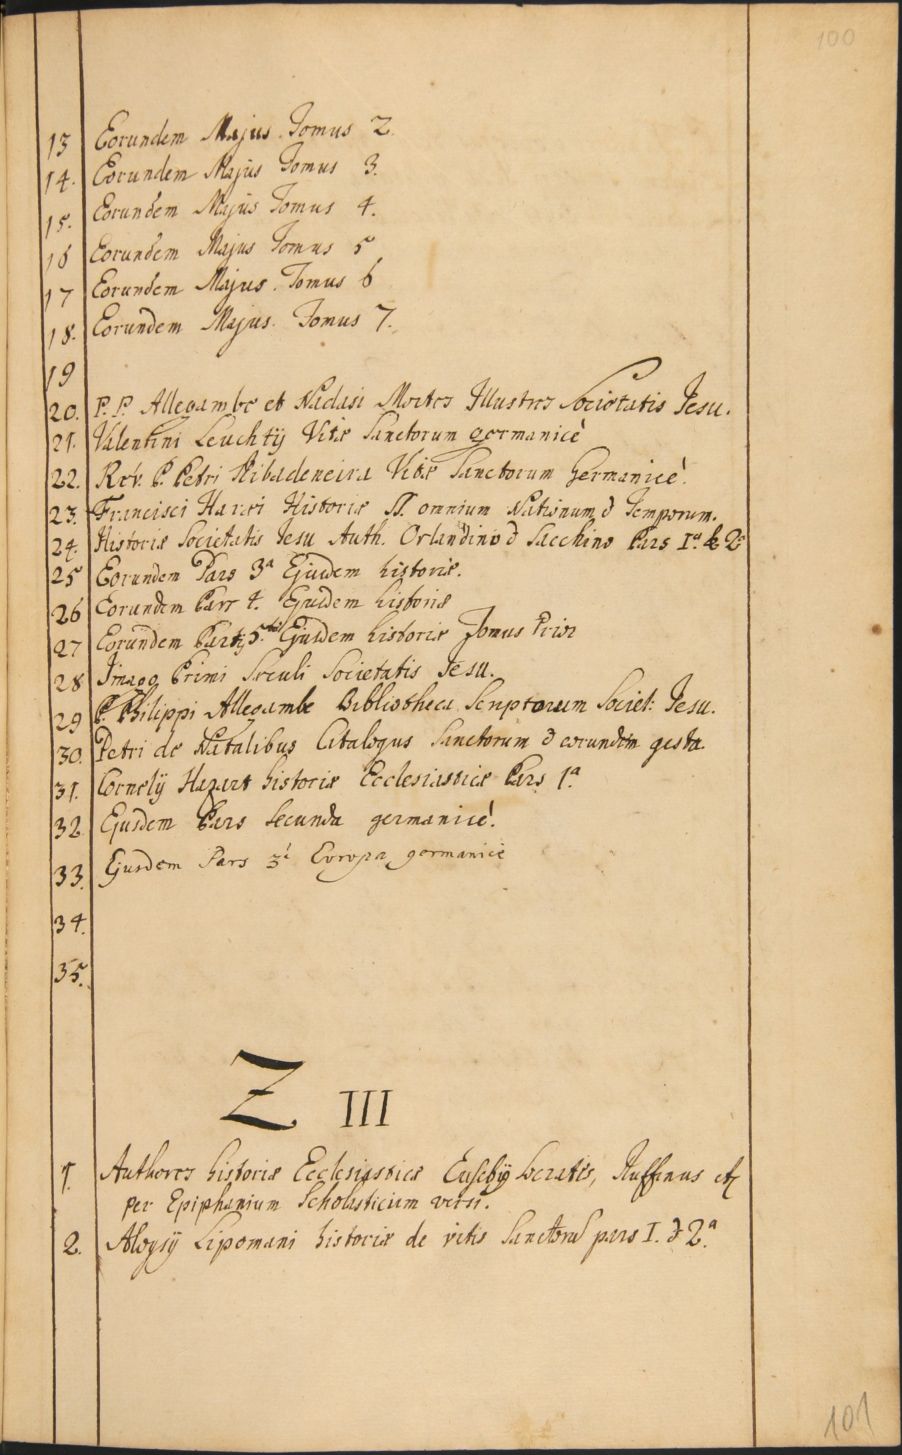 100
13 Eorundem Majus. Tomus 2.
14. Eorundem Majus Tomus 3.
15. Eorundem Majus Tomus 4.
16 Eorundem Majus Tomus 5
17 Eorundem Majus. Tomus 6
18. Eorundem Majus. Tomus 7.
19
20. P. P. Allegambe et Nadasi Mortes Illustres Societatis Jesu.
21. Valentini Leuchtij Vitæ Sanctorum germanicè
22. Rev. P. Petri Ribadeneira Vitæ Sanctorum Germanicè.
23. Francisci Haræi Historiæ SS. omnium Nationum & Temporum.
24. Historiæ Societatis Jesu Auth. Orlandino & Sacchino Pars 1.a & 2a
25 Eorundem Pars 3a Ejusdem historiæ.
26 Eorundem Pars 4. Ejusdem historiæ
27 Eorundem Partis 5.tæ Ejusdem historiæ Tomus Prior
28 Imago Primi Sæculi Societatis Jesu.
29 P. Philippi Allegambe Bibliotheca Scriptorum Societ: Jesu.
30. Petri de Natalibus Catalogus Sanctorum & eorundem gesta.
31. Cornelij Hazart historiæ Ecclesiasticæ Pars 1.a
32 Ejusdem Pars Secunda germanicè.
33. Ejusdem Pars 3. Europa germanicè
34.
35.
Z III
1. Authores historiæ Ecclesiasticæ Eusebij Socratis, Ruffinus etc
per Epiphanium Scholasticum versi.
2. Aloysij Lipomani historiæ de vitis Sanctorum pars I. & 2.a
101